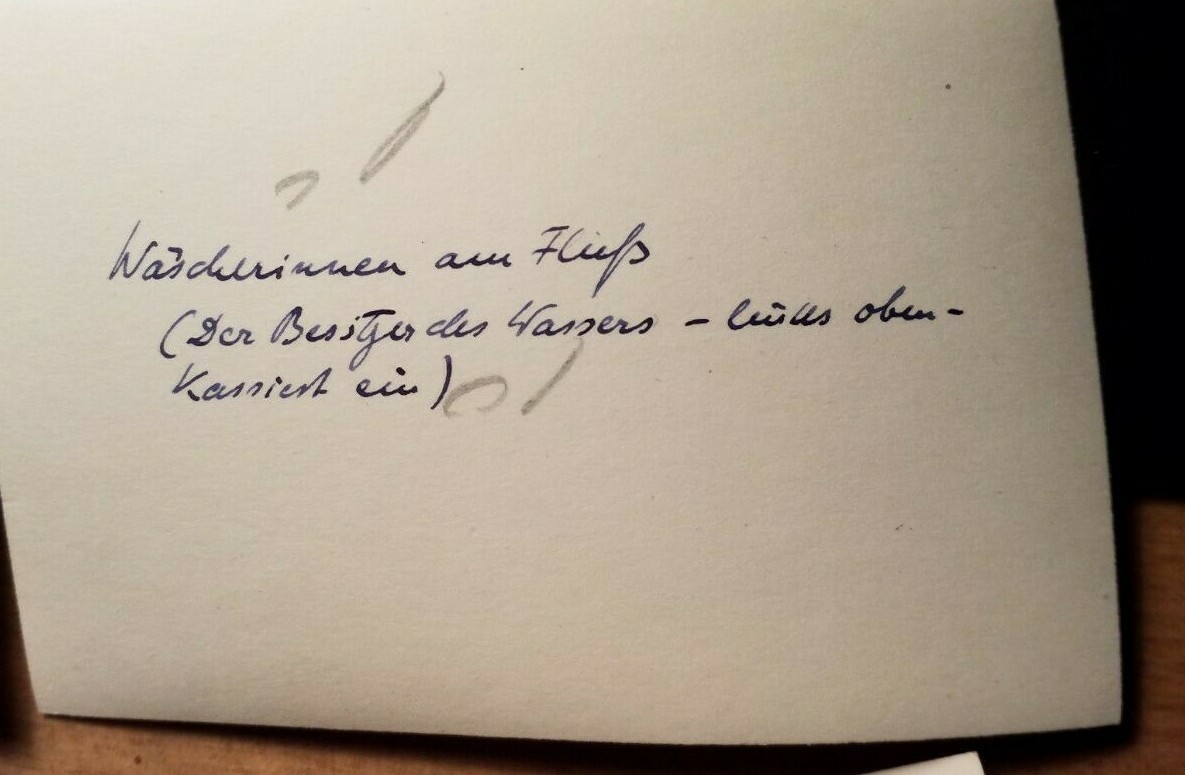 Wäscherinnen am Fluß
(Der Besitzer des Wassers – links oben –
Kassiert ein)